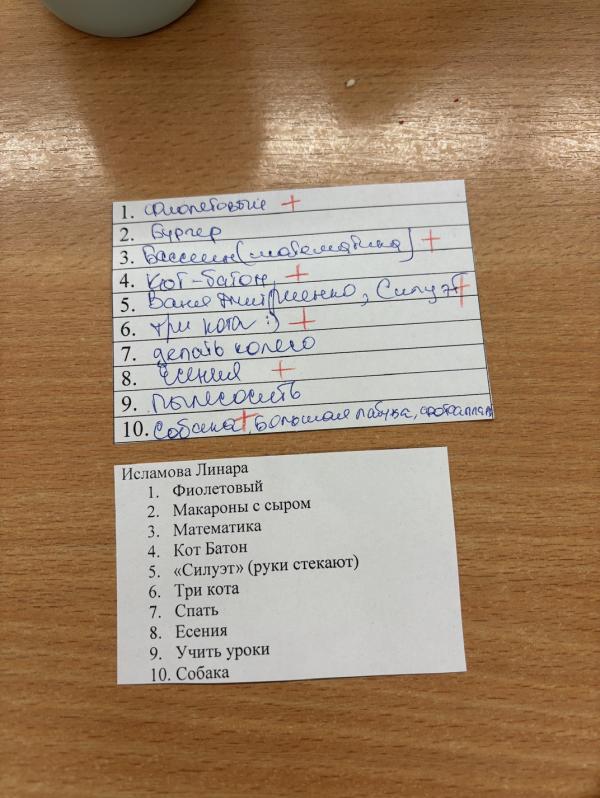 1. Фиолетовые +
2. Бургер
3. Бассеин (математика) +
4. Кот-батон, +
5. Ваня Дмитриенко, Силуэт +
6. три кота :) +
7. делать колесо
8. Есения +
9. пылесосить
10. Собака +, большая пабука,
Исламова Линара
1. Фиолетовый
2. Макароны с сыром
3. Математика
4. Кот Батон
5. «Силуэт» (руки стекают)
6. Три кота
7. Спать
8. Есения
9. Учить уроки
10. Собака